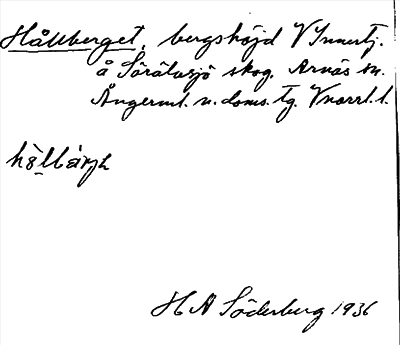 Hållberget, bergshöjd V Innertj.
å Sörätusjö skog. Arnäs sn.
Ångerml. n. doms. tg. Vnorrl. l.
H A Söderberg 1936